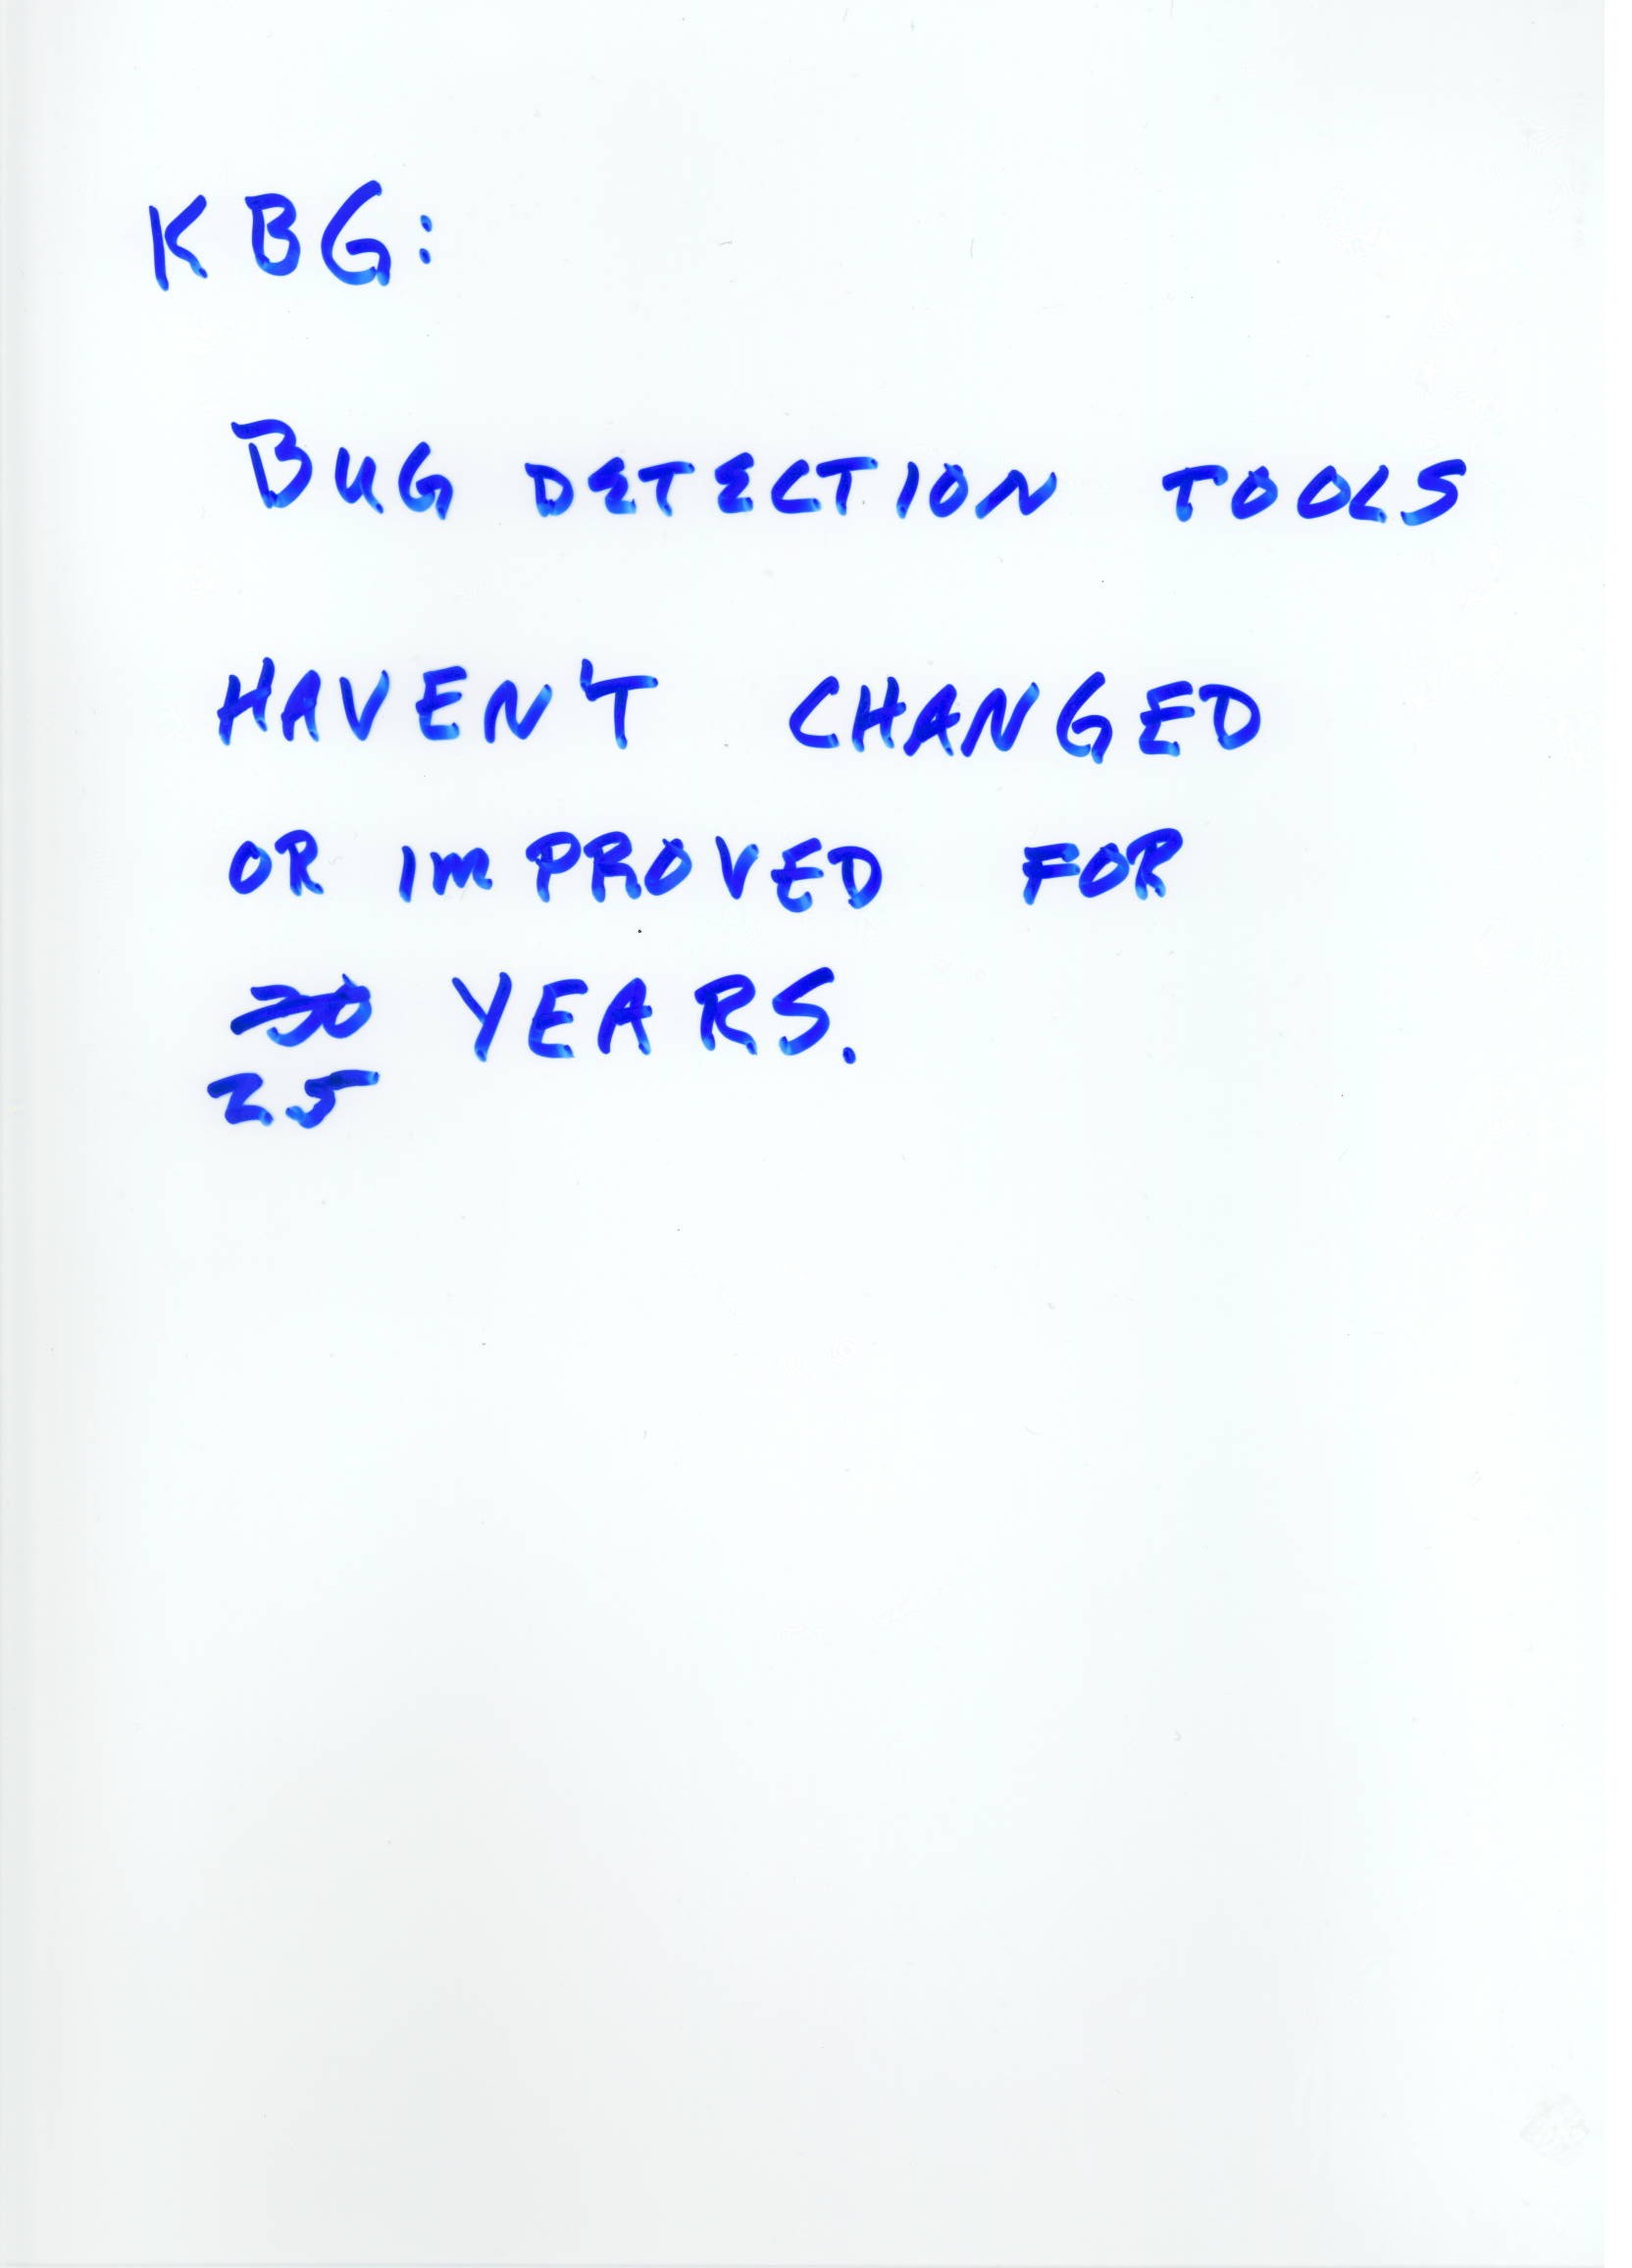 KBG:
BUG DETECTION TOOLS
HAVEN'T CHANGED
OR IMPROVED FOR
YEARS.
25